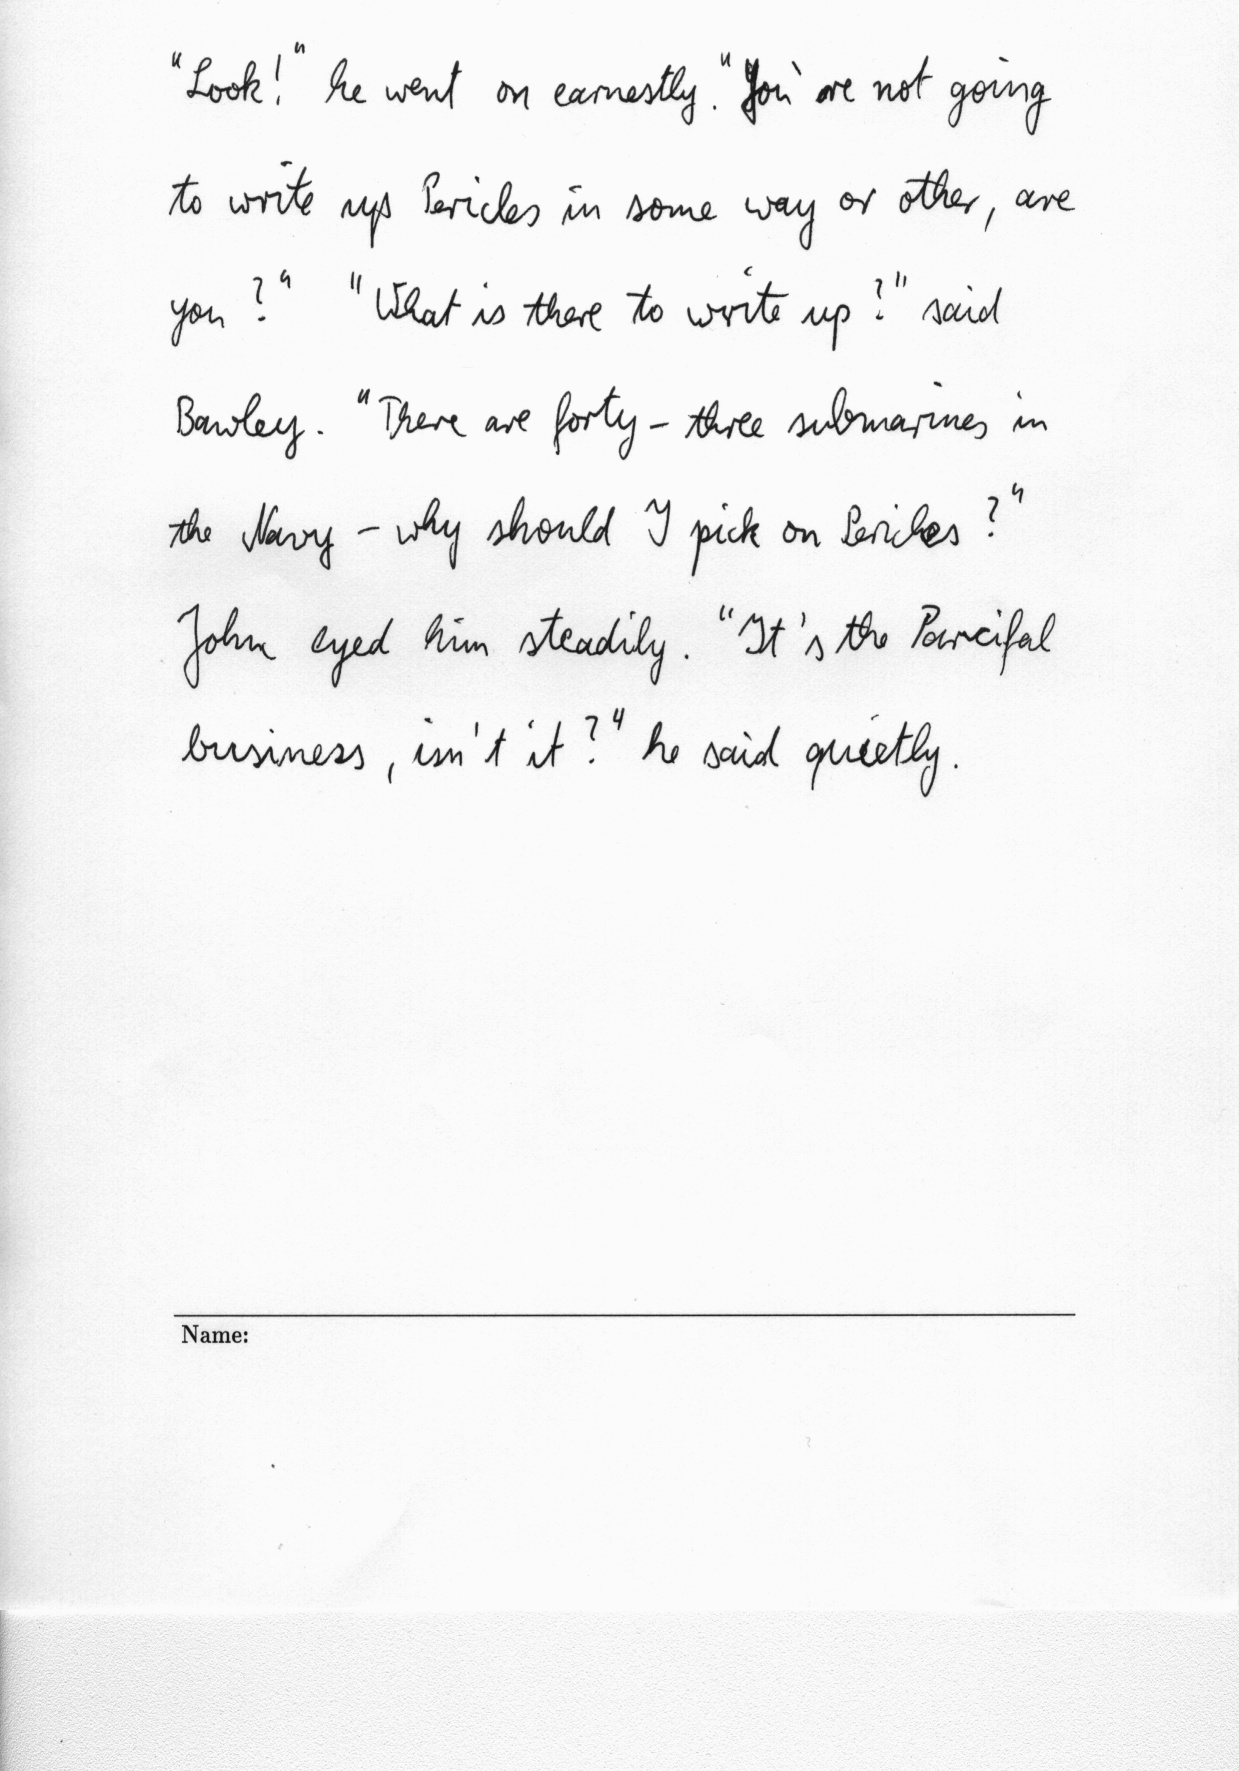 "Look!" he went on earnestly. "You're not going
to write up Pericles in some way or other, are
you?" "What is there to write up?" said
Bawley. "There are forty-three submarines in
the Navy - why should I pick on Pericles?"
John eyed him steadily. "It's the Parcifal
business, isn't it?" he said quietly.
Name: